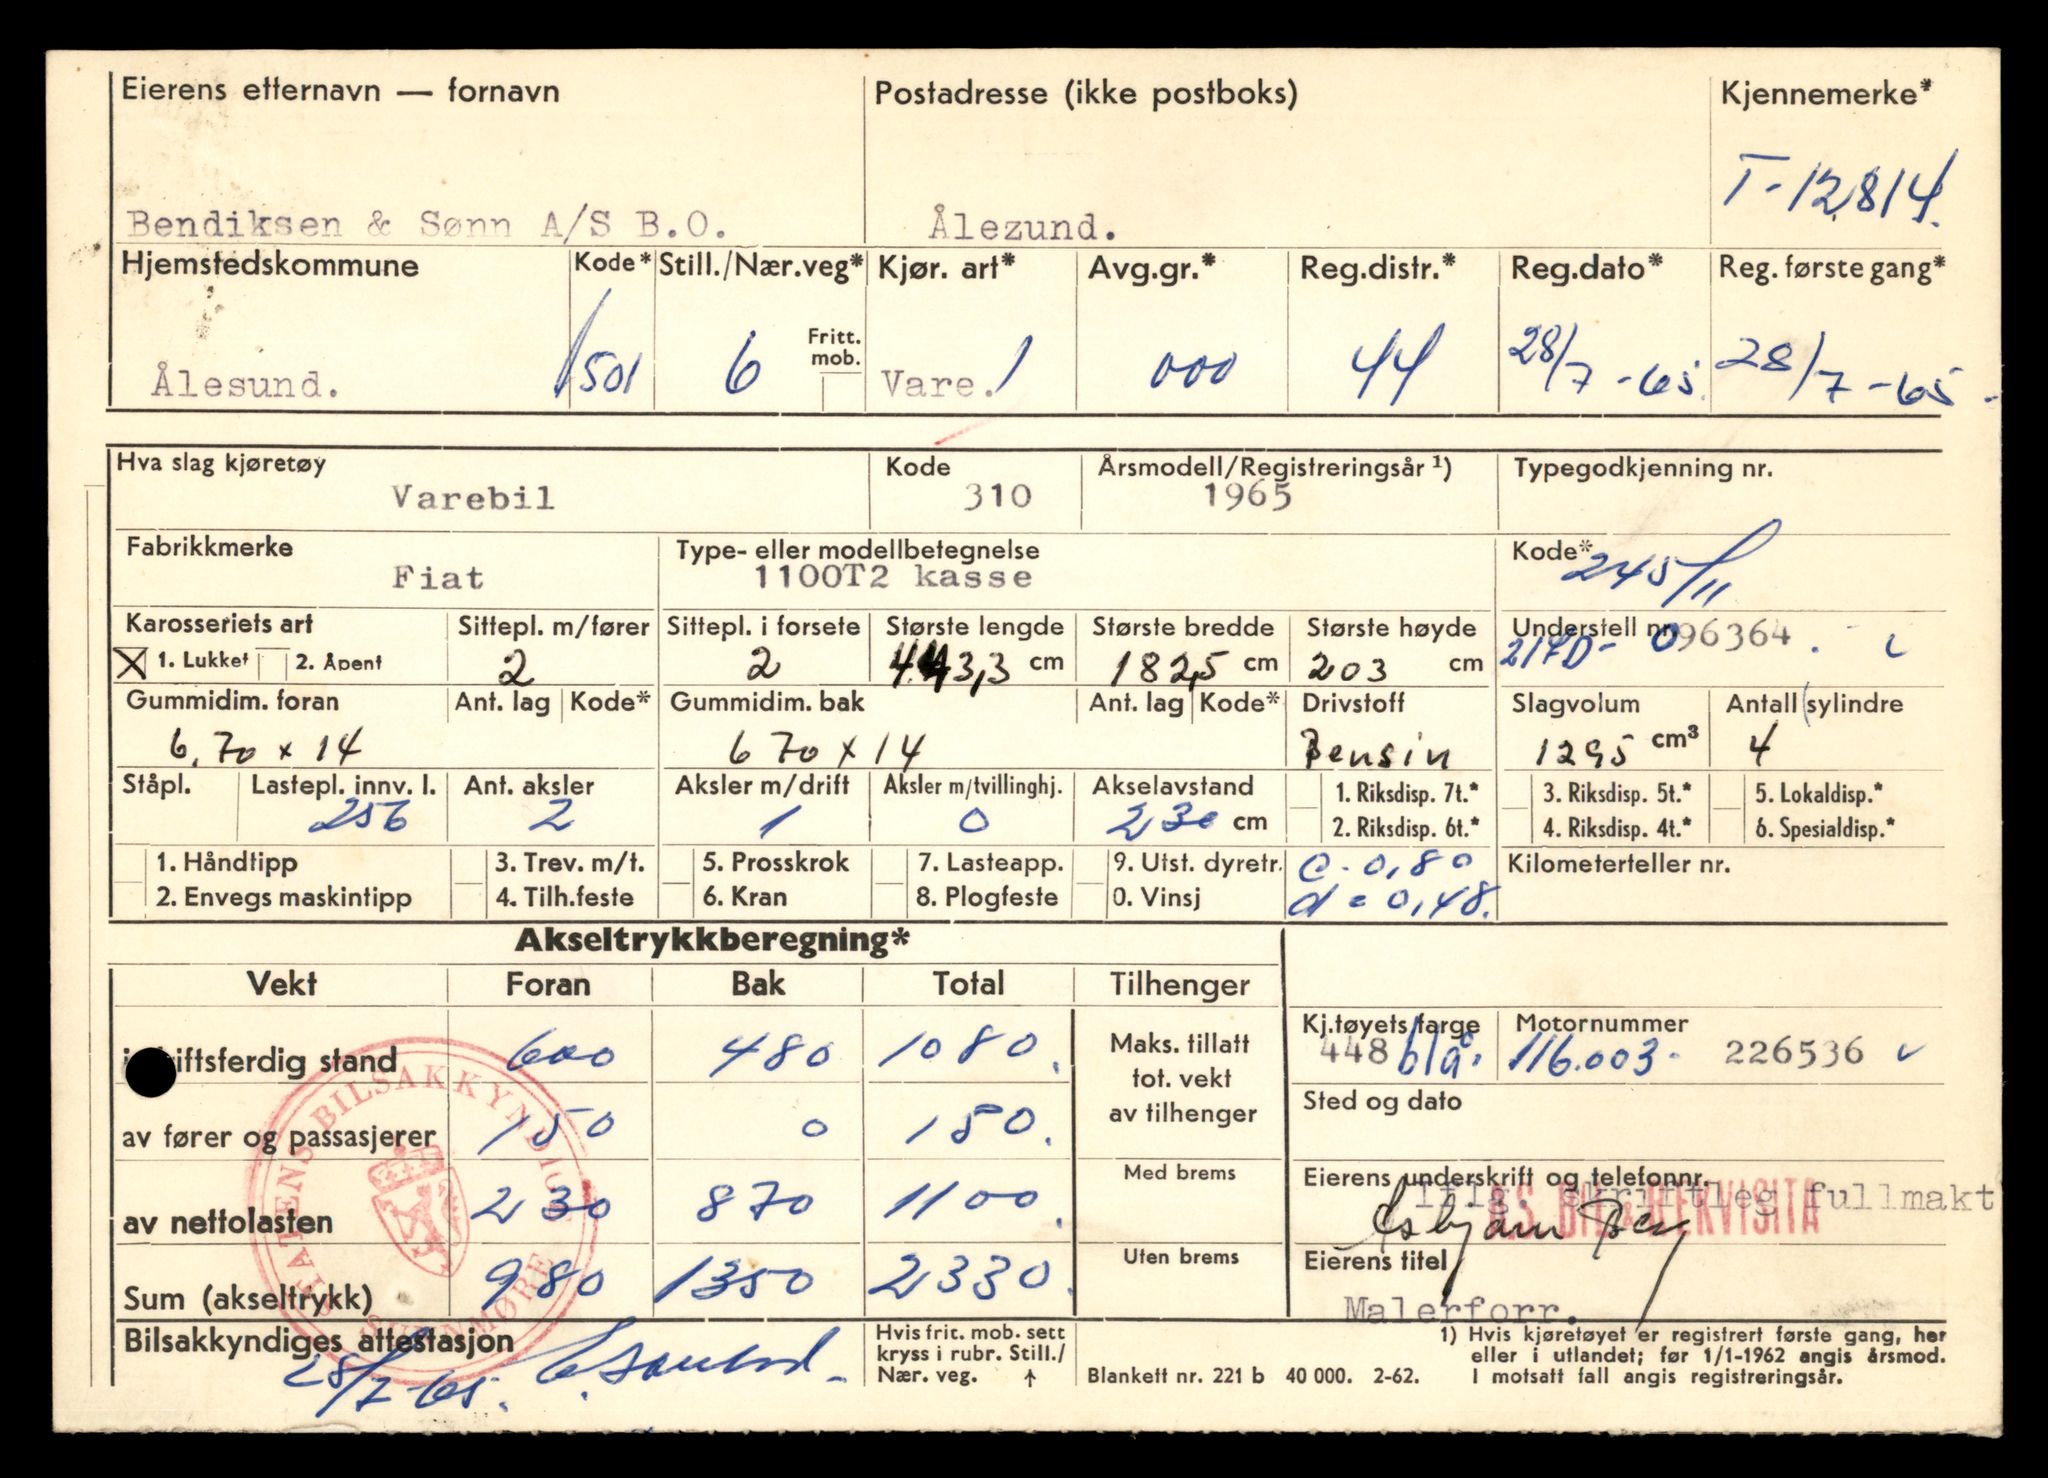 Eierens etternavn — fornavn Postadresse (ikke postboks) Kjennemerke*
T-12814.
Bendiksen & Sønn A/S B.O. Ålezund.
Hjemstedskommune Kode* Still./Nær.veg* Kjør. art* Avg.gr.* Reg.distr.* Reg.dato* Reg. første gang*
Fritt. mob.
Ålesund. 1501 6 Vare. 1 000 44 28/7-65. 28/7-65.
Hva slag kjøretøy Kode Årsmodell/Registreringsår ¹) Typegodkjenning nr.
Varebil 310 1965
Fabrikkmerke Type- eller modellbetegnelse Kode*
Fiat 1100T2 kasse 245/11
Karosseriets art Sittepl. m/fører Sittepl. i forsete Største lengde Største bredde Største høyde Understell nr.
1. Lukket 2. Åpent 2 2 443,3 cm 182,5 cm 203 cm 217D- 096364.
Gummidim. foran Ant. lag Kode* Gummidim. bak Ant. lag Kode* Drivstoff Slagvolum Antall sylindre
6,70 x 14 670 x 14 Bensin 1295 cm³ 4
Ståpl. Lastepl. innv. l. Ant. aksler Aksler m/drift Aksler m/tvillinghj. Akselavstand 1. Riksdisp. 7t.* 3. Riksdisp. 5t.* 5. Lokaldisp.*
256 2 1 0 230 cm 2. Riksdisp. 6t.* 4. Riksdisp. 4t.* 6. Spesialdisp.*
1. Håndtipp 3. Trev. m/t. 5. Prosskrok 7. Lasteapp. 9. Utst. dyretr. c. 0,80 Kilometerteller nr.
2. Envegs maskintipp 4. Tilh.feste 6. Kran 8. Plogfeste 0. Vinsj d = 0,48.
Akseltrykkberegning*
Vekt Foran Bak Total Tilhenger
Kj.tøyets farge Motornummer
stand 600 480 1080. Maks. tillatt tot. vekt av tilhenger 448 blå. 116.003- 226536
Sted og dato
av fører og passasjerer 150 0 150.
Med brems Eierens underskrift og telefonnr.
Iflg. skriftleg fullmakt
BILREKVISITA
av nettolasten 230 870 1100. Asbjørn Berg
Uten brems Eierens titel
Sum (akseltrykk) 980 1350 2330.
Malerforr.
STATENS BILSAKKYNDIGE SUNNMØRE
Bilsakkyndiges attestasjon Hvis frit. mob. sett kryss i rubr. Still./ Nær. veg. ↑
28/7-65.
Blankett nr. 221 b 40 000. 2-62.
1) Hvis kjøretøyet er registrert første gang, her
eller i utlandet; før 1/1-1962 angis årsmod.
I motsatt fall angis registreringsår.